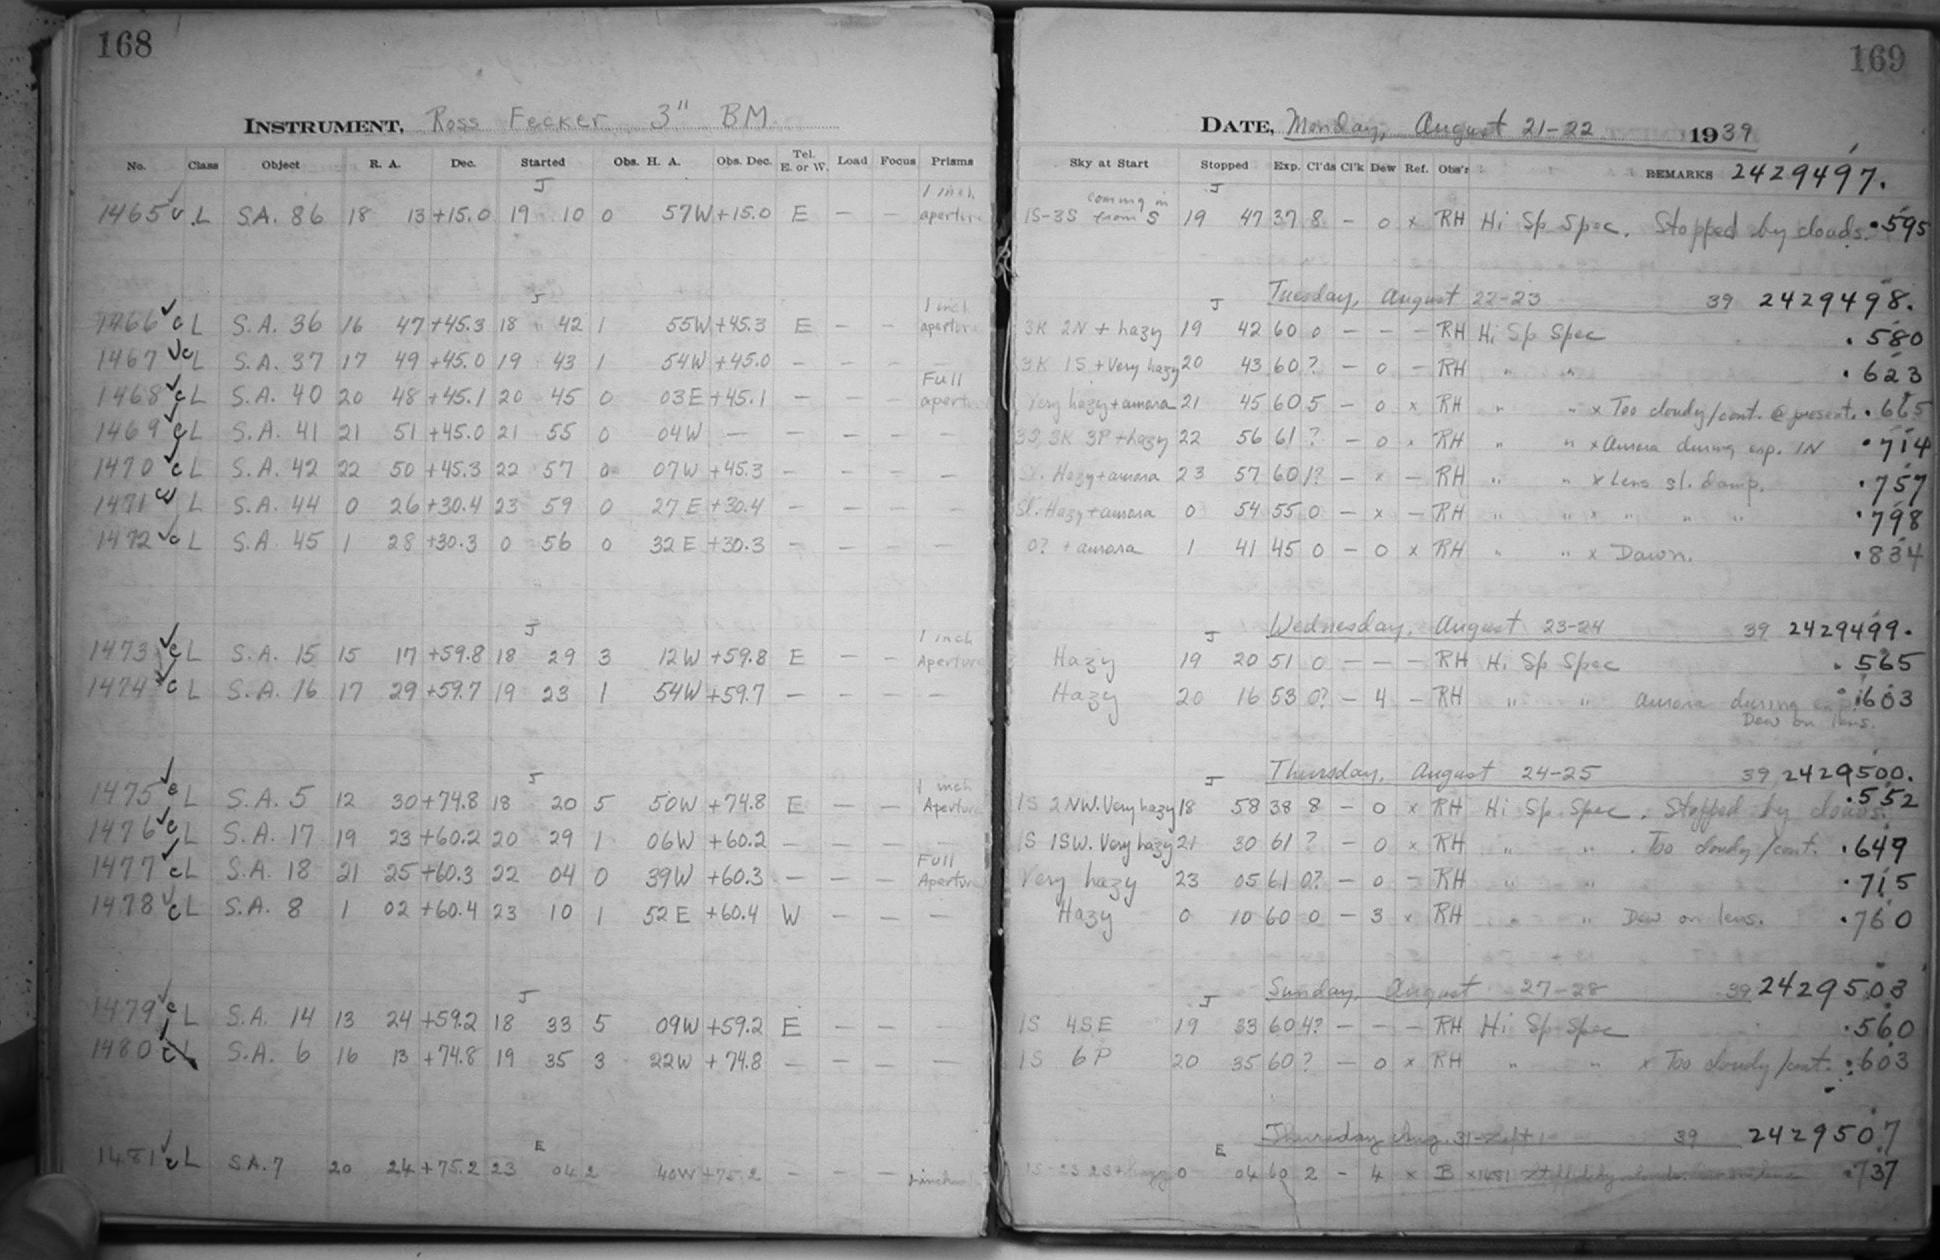 168
INSTRUMENT, Ross Fecker 3" BM
No. Class Object R. A. Dec. Started Obs. H. A. Obs. Dec. Tel. E. or W. Load Focus Prisms
J 1 inch
1465 L S.A. 86 18 13 +15.0 19 10 0 57W +15.0 E — — aperture
J 1 inch
1466 c L S.A. 36 16 47 +45.3 18 42 1 55W +45.3 E — — aperture
1467 c L S.A. 37 17 49 +45.0 19 43 1 54W +45.0 — — — —
Full
1468 c L S.A. 40 20 48 +45.1 20 45 0 03E +45.1 — — — apert.
1469 c L S.A. 41 21 51 +45.0 21 55 0 04W — — — — —
1470 c L S.A. 42 22 50 +45.3 22 57 0 07W +45.3 — — — —
1471 L S.A. 44 0 26 +30.4 23 59 0 27E +30.4 — — — —
1472 c L S.A. 45 1 28 +30.3 0 56 0 32E +30.3 — — — —
J 1 inch
1473 c L S.A. 15 15 17 +59.8 18 29 3 12W +59.8 E — — Aperture
1474 c L S.A. 16 17 29 +59.7 19 23 1 54W +59.7 — — — —
J 1 inch
1475 c L S.A. 5 12 30 +74.8 18 20 5 50W +74.8 E — — Aperture
1476 c L S.A. 17 19 23 +60.2 20 29 1 06W +60.2 — — — —
Full
1477 c L S.A. 18 21 25 +60.3 22 04 0 39W +60.3 — — — Aperture
1478 c L S.A. 8 1 02 +60.4 23 10 1 52E +60.4 W — — —
J
1479 c L S.A. 14 13 24 +59.2 18 33 5 09W +59.2 E — — —
1480 c L S.A. 6 16 13 +74.8 19 35 3 22W +74.8 — — — —
E
1481 c L SA.7 20 24 +75.2 23 04 2 40W +75.2 — — —
169
DATE, Monday, August 21-22 1939
Sky at Start Stopped Exp. Cl'ds Cl'k Dew Ref. Obs'r REMARKS 2429497.
coming in J
1S-3S from S 19 47 37 8 — 0 x RH Hi Sp Spec. Stopped by clouds. .595
J Tuesday, August 22-23 39 2429498.
3K 2N + hazy 19 42 60 0 — — — RH Hi Sp Spec .580
3K 1S + Very hazy 20 43 60 ? — 0 — RH " " .623
Very hazy + aurora 21 45 60 5 — 0 x RH " " x Too cloudy/cont. @ present. .665
3K 3P + hazy 22 56 61 ? — 0 x RH " " x Aurora during exp. 1N .714
Sl. Hazy + aurora 23 57 60 1? — x — RH " " x Lens sl. damp. .757
Sl. Hazy + aurora 0 54 55 0 — x — RH " " x " " " .798
0? + aurora 1 41 45 0 — 0 x RH " " x Dawn. .834
J Wednesday, August 23-24 39 2429499.
Hazy 19 20 51 0 — — — RH Hi Sp Spec .565
Hazy 20 16 53 0? — 4 — RH " " aurora during exp. .603
Dew on lens.
J Thursday, August 24-25 39 2429500.
1S 2NW. Very hazy 18 58 38 8 — 0 x RH Hi Sp Spec. Stopped by clouds. .552
1S 1SW. Very hazy 21 30 61 ? — 0 x RH " " . Too cloudy/cont. .649
Very hazy 23 05 61 0? — 0 — RH " " .715
Hazy 0 10 60 0 — 3 x RH " " Dew on lens. .760
J Sunday, August 27-28 39 2429503
1S 4SE 19 33 60 4? — — — RH Hi Sp Spec .560
1S 6P 20 35 60 ? — 0 x RH " " x Too cloudy/cont. .603
E Thursday Aug. 31-Sept 1 39 2429507
0 04 60 2 — 4 x B x1481 .737